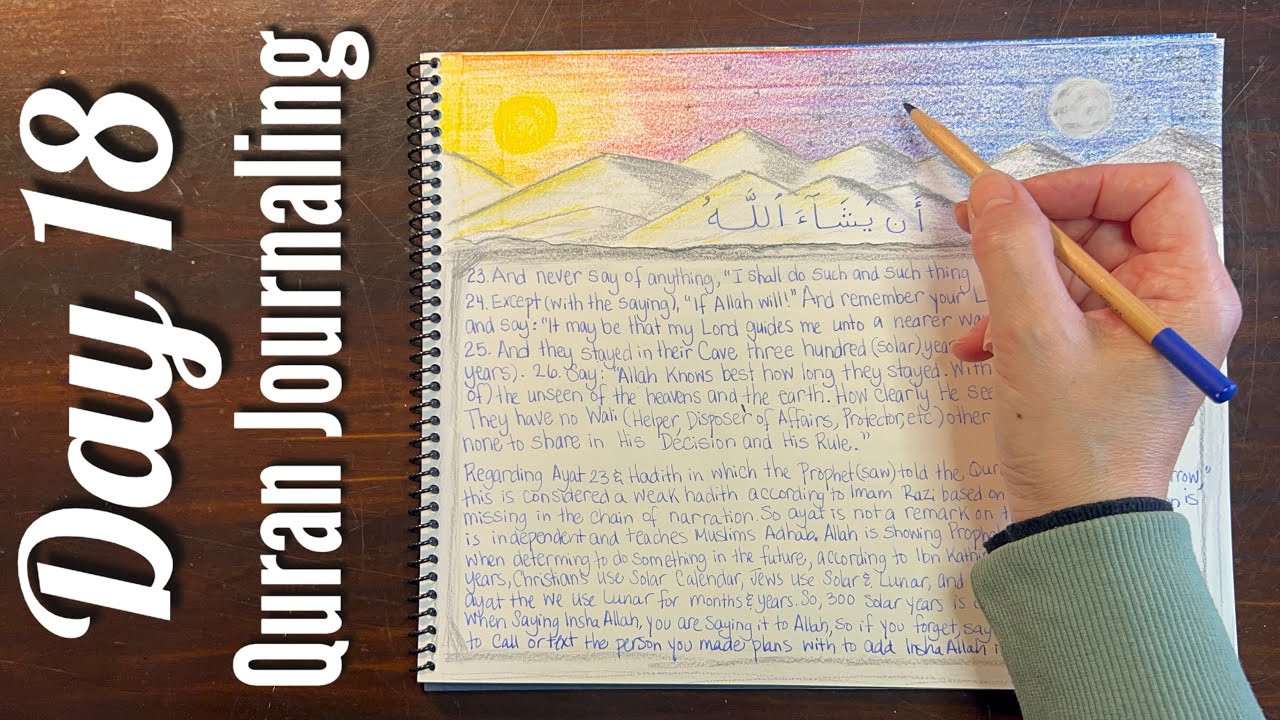 Day 18
Quran Journaling
أَن يَشَآءَ ٱللَّهُ
23. And never say of anything, "I shall do such and such thing
24. Except (with the saying), "If Allah will!" And remember your L
and say: "It may be that my Lord guides me unto a nearer wa
25. And they stayed in their Cave three hundred (solar) year
years). 26. Say: "Allah Knows best how long they stayed. With
of) the unseen of the heavens and the earth. How clearly He see
They have no Wali (Helper, Disposer of Affairs, Protector, etc.) other
none to share in His Decision and His Rule."
Regarding Ayat 23 & Hadith in which the Prophet (saw) told the Qur row,"
this is considered a weak hadith according to Imam Razi based on is
missing in the chain of narration. So ayat is not a remark on t
is independent and teaches Muslims Adhab. Allah is showing Proph
when determing to do something in the future, according to Ibn Kathi
years, Christians use Solar Calendar, Jews use Solar & Lunar, and
ayat the we use Lunar for months & years. So, 300 Solar years is
When saying Insha Allah, you are saying it to Allah, so if you forget, say
to call or text the person you made plans with to add Insha Allah i